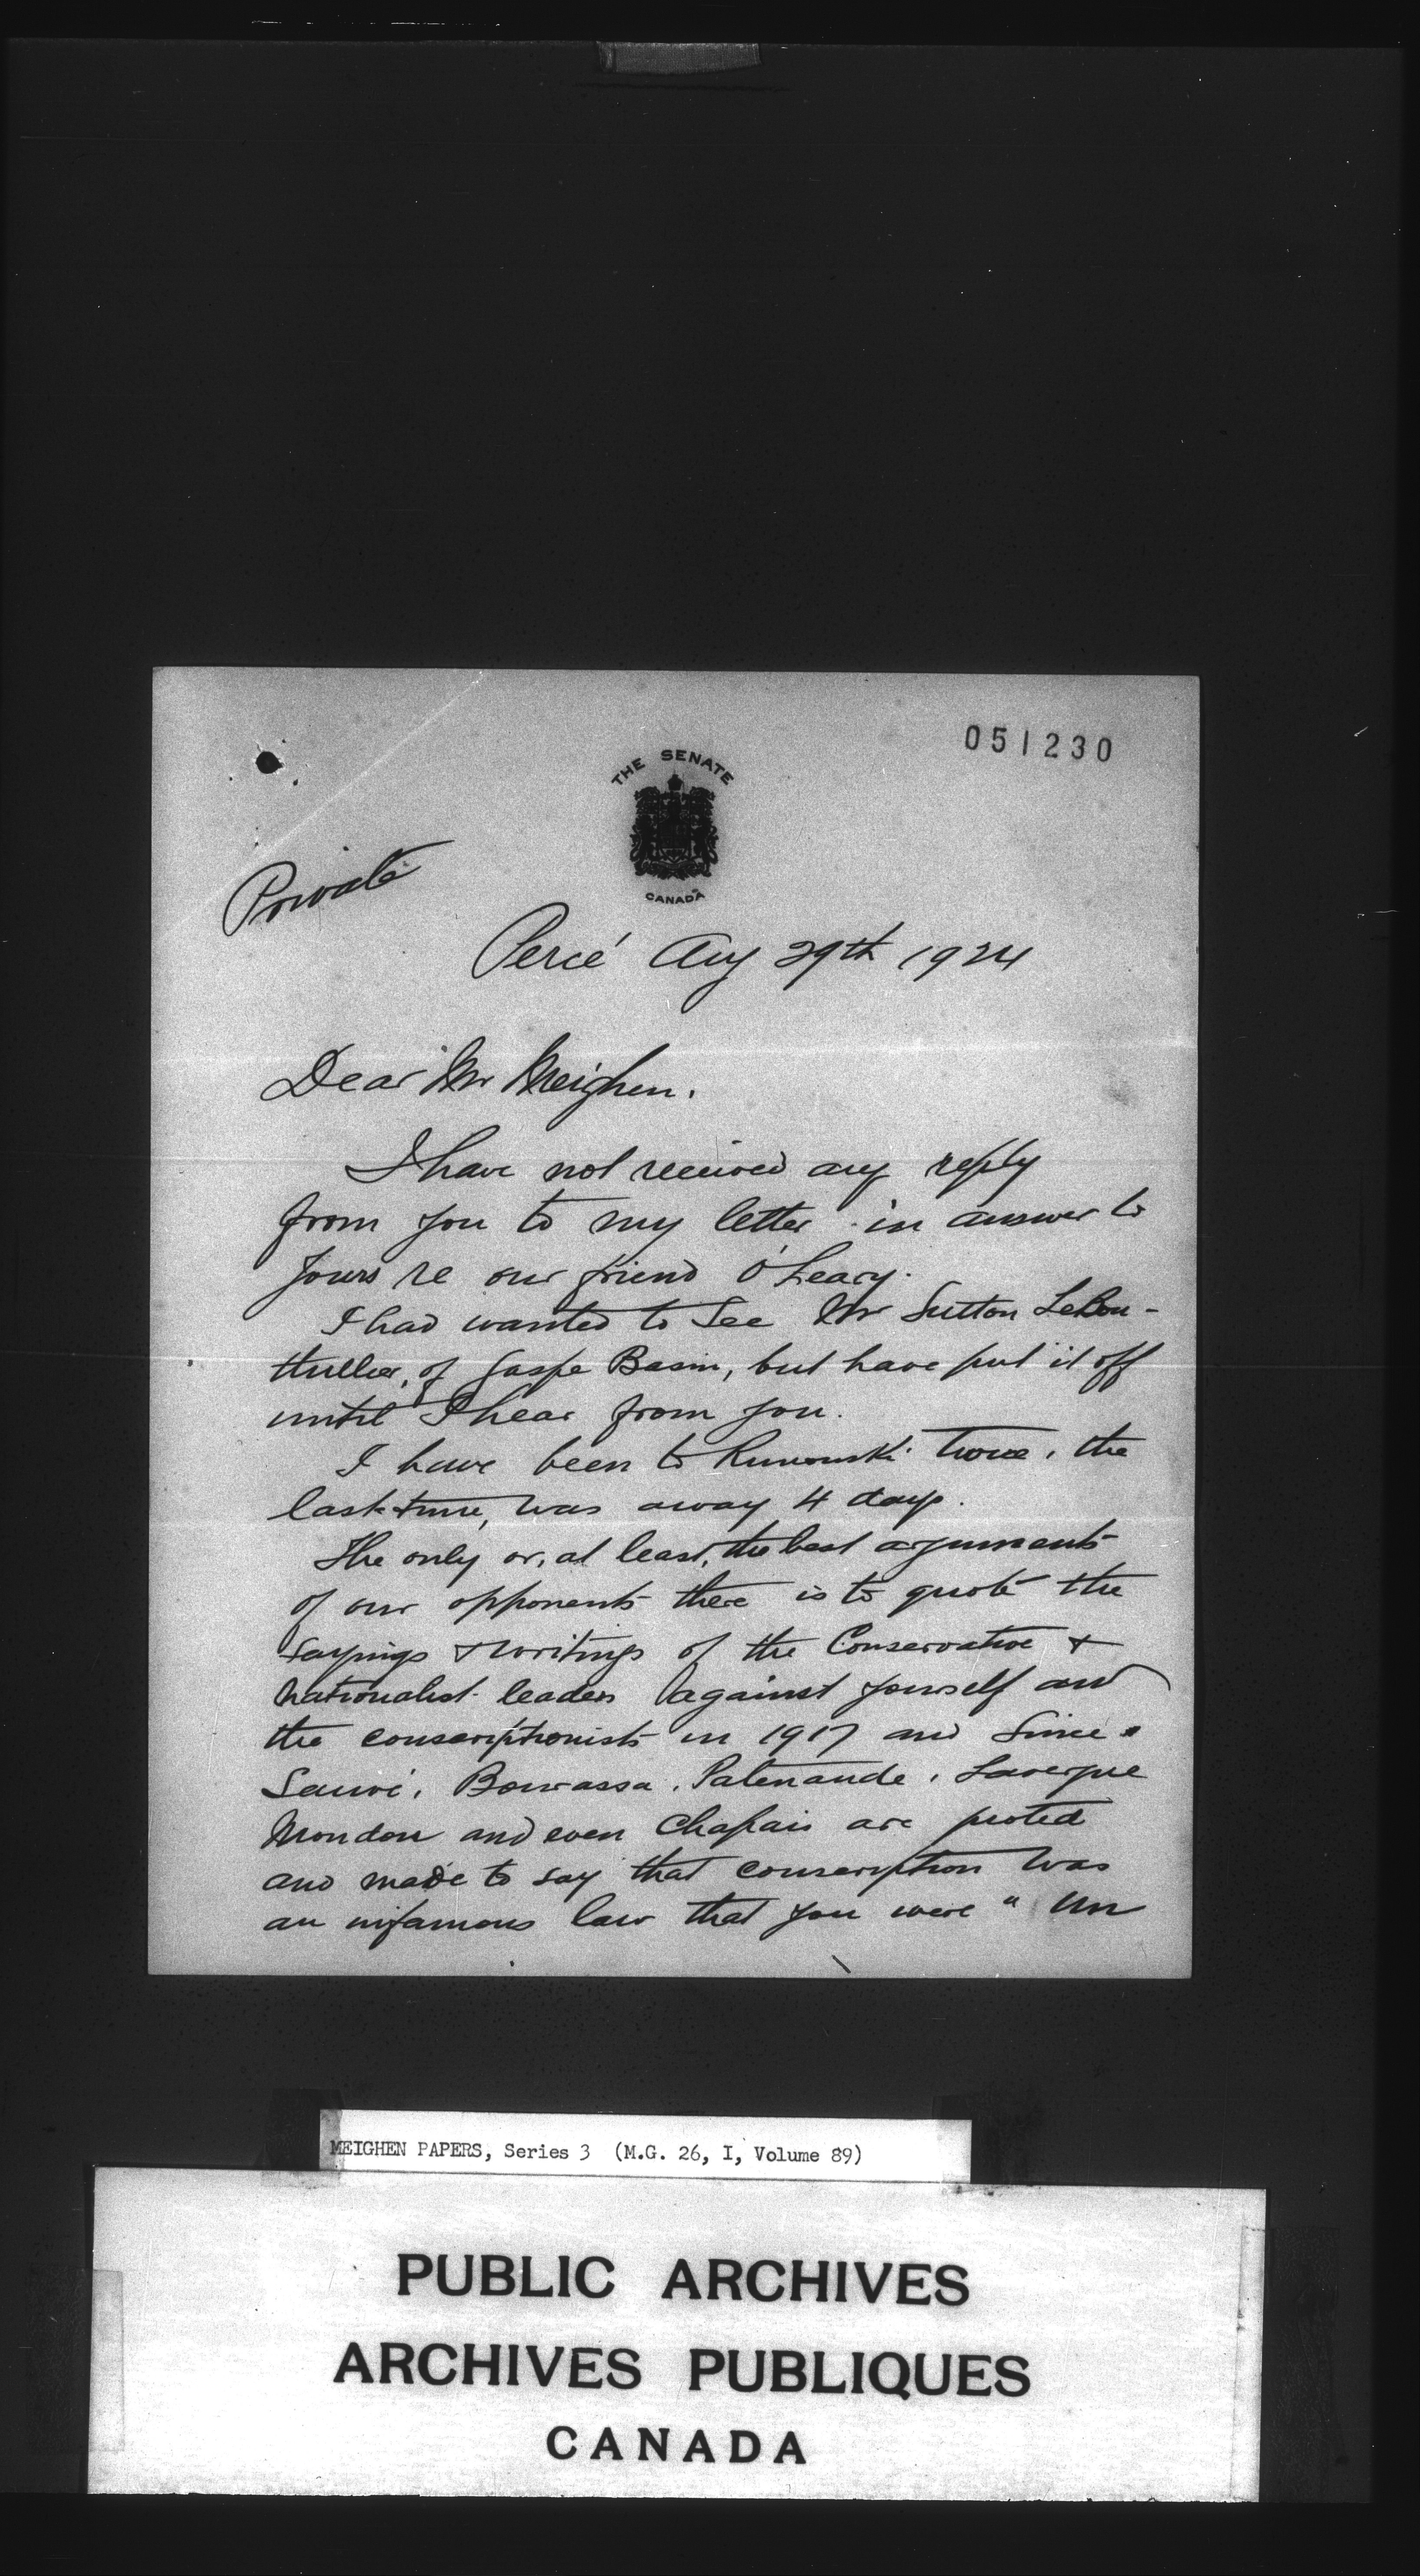 051230
THE SENATE
CANADA
Private
Percé Aug 29th 1924
Dear Mr Meighen.
I have not received any reply
from you to my letter in answer to
yours re our friend O'Leary.
I had wanted to see Mr Sutton LeBou-
thillier, of Gaspe Basin, but have put it off
until I hear from you.
I have been to Rimouski twice, the
last time, was away 4 days.
The only or, at least, the best arguments
of our opponents there is to quote the
sayings & writings of the Conservative &
Nationalist leaders against yourself and
the conscriptionists in 1917 and since.
Sauvé, Bourassa, Patenaude, Lavergne
Mondou and even Chapais are quoted
and made to say that conscription was
an infamous law that you were " un
MEIGHEN PAPERS, Series 3 (M.G. 26, I, Volume 89)
PUBLIC ARCHIVES
ARCHIVES PUBLIQUES
CANADA